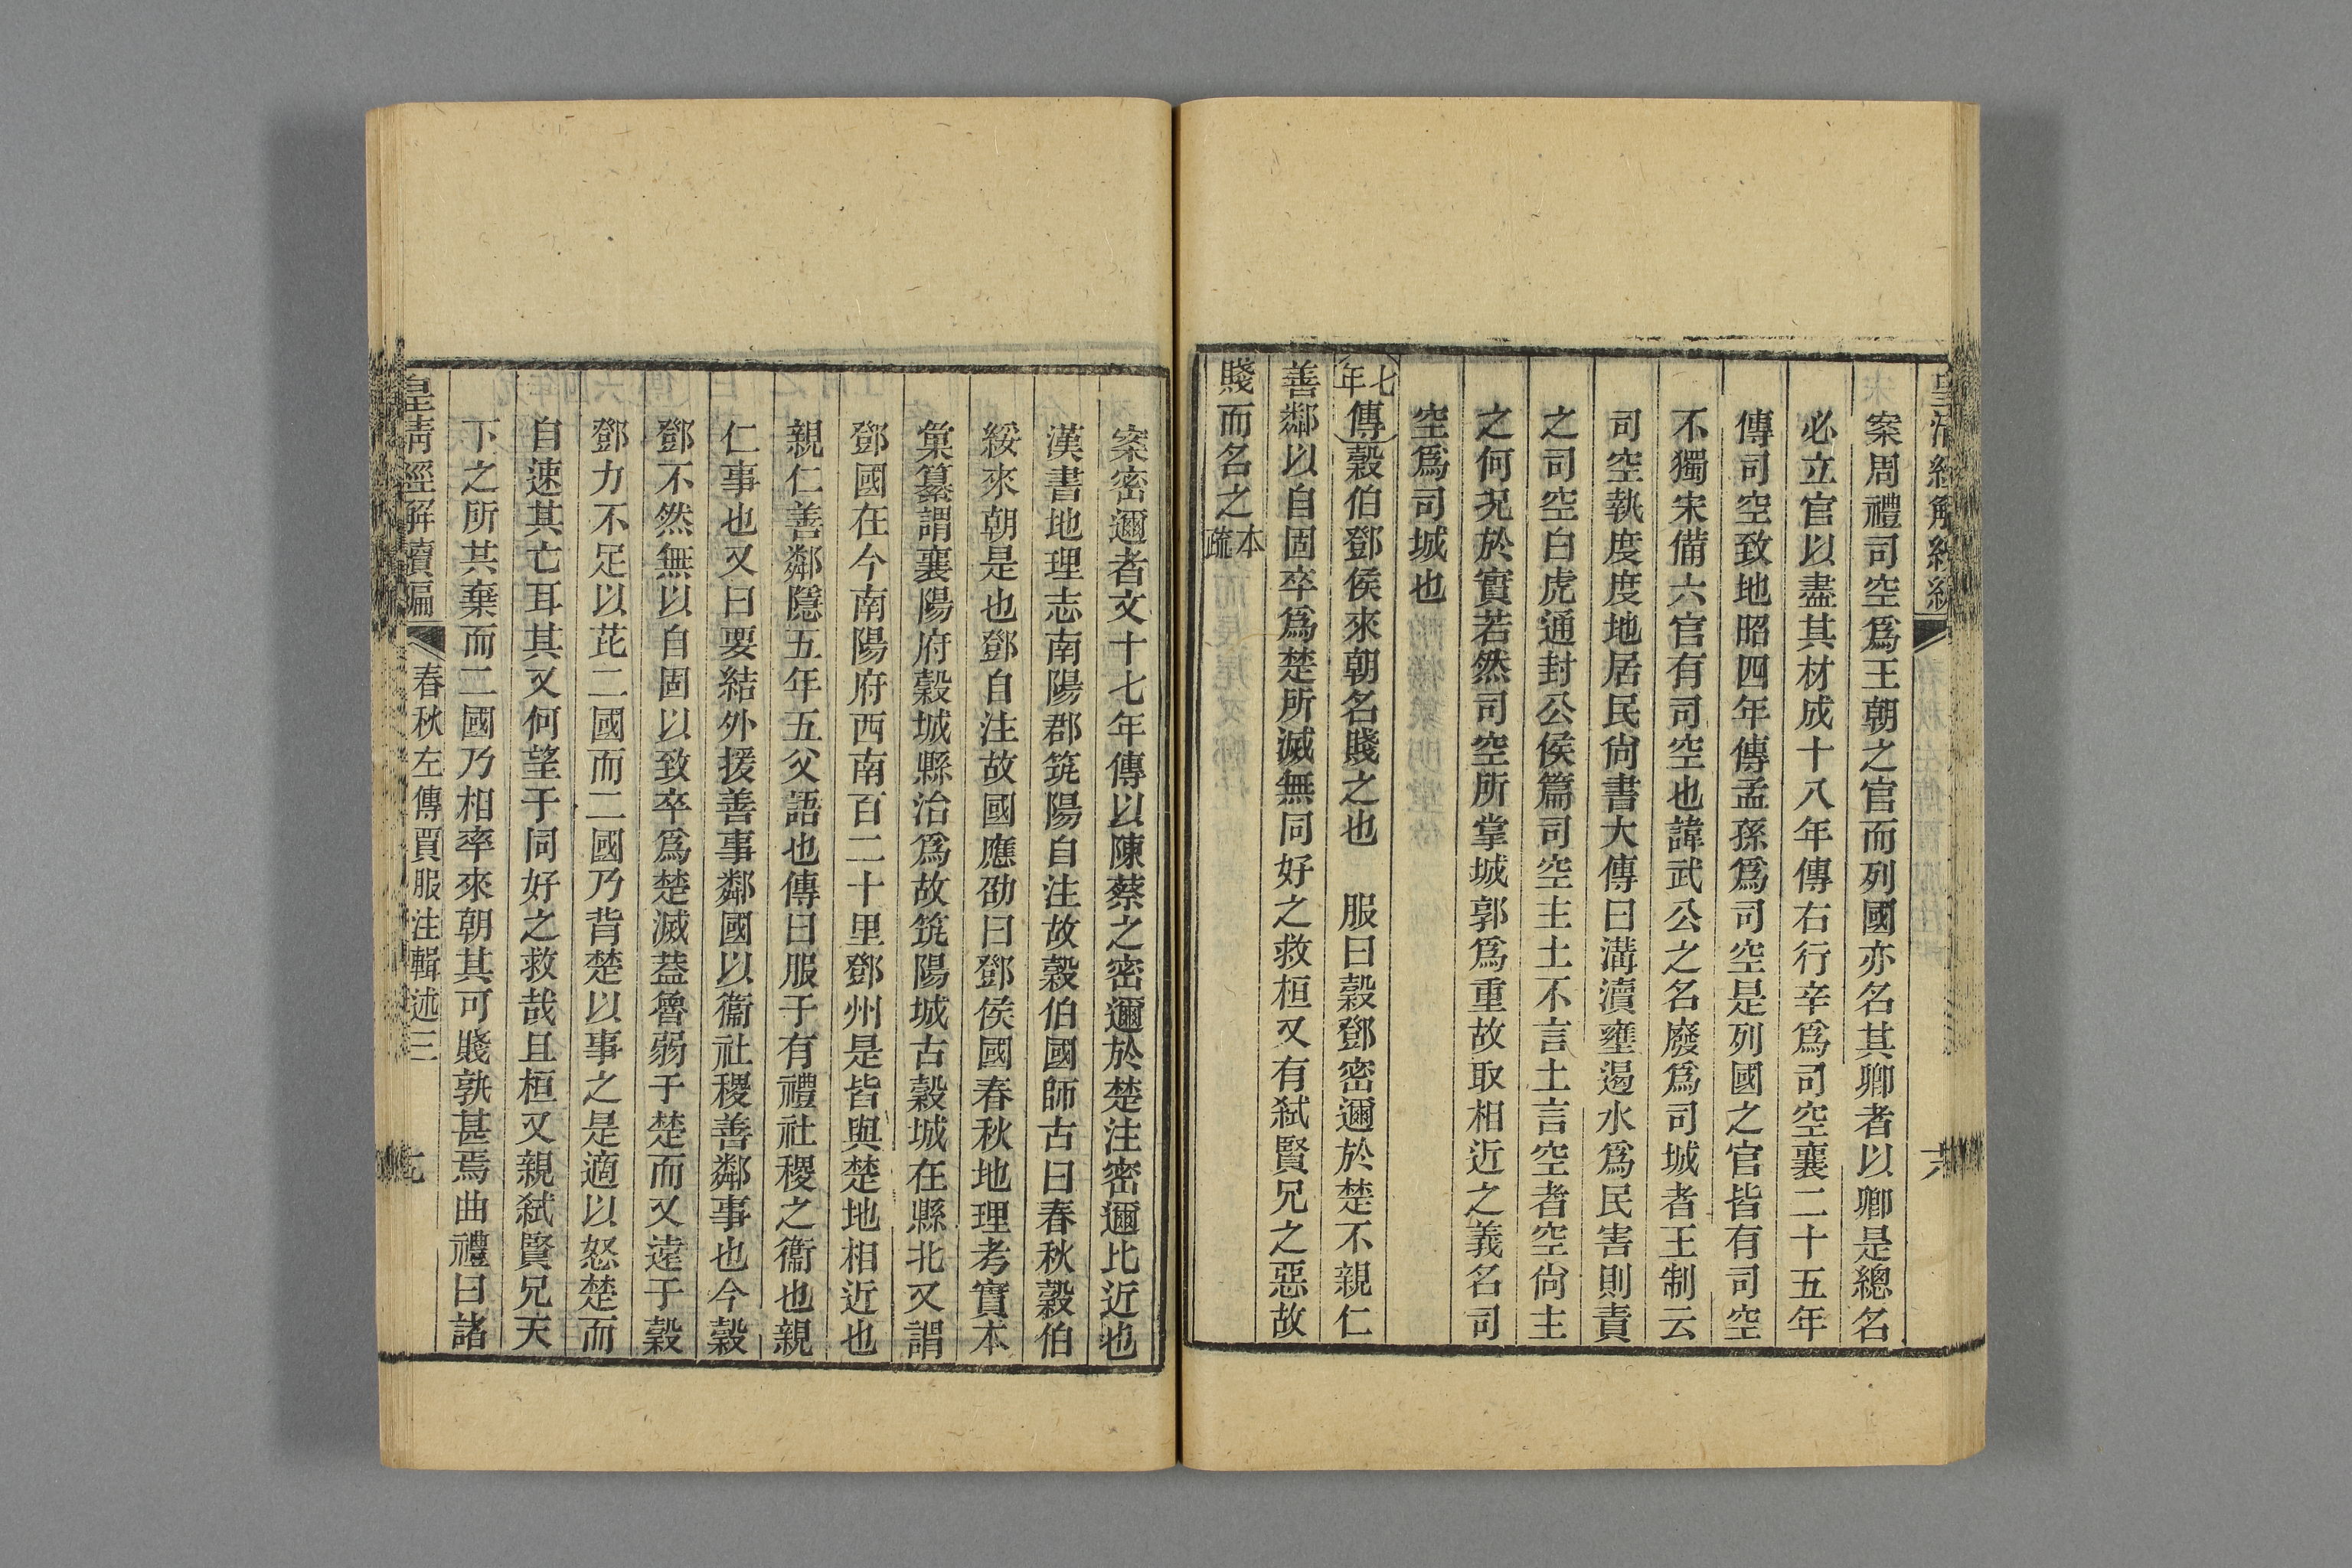 案周禮司空爲王朝之官而列國亦名其卿者以卿是總名
必立官以盡其材成十八年傳右行辛爲司空襄二十五年
傳司空致地昭四年傳孟孫爲司空是列國之官皆有司空
不獨宋備六官有司空也諱武公之名廢爲司城者王制云
司空執度度地居民尙書大傳曰溝瀆壅遏水爲民害則責
之司空白虎通封公侯篇司空主土不言土言空者空尙主
之何況於實若然司空所掌城郭爲重故取相近之義名司
空爲司城也
七年傳穀伯鄧侯來朝名賤之也　服曰穀鄧密邇於楚不親仁
善鄰以自固卒爲楚所滅無同好之救桓又有弒賢兄之惡故
賤而名之本疏
案密邇者文十七年傳以陳蔡之密邇於楚注密邇比近也
漢書地理志南陽郡筑陽自注故穀伯國師古曰春秋穀伯
綏來朝是也鄧自注故國應劭曰鄧侯國春秋地理考實本
彙纂謂襄陽府穀城縣治爲故筑陽城古穀城在縣北又謂
鄧國在今南陽府西南百二十里鄧州是皆與楚地相近也
親仁善鄰隱五年五父語也傳曰服于有禮社稷之衞也親
仁事也又曰要結外援善事鄰國以衞社稷善鄰事也今穀
鄧不然無以自固以致卒爲楚滅葢魯弱于楚而又逺于穀
鄧力不足以芘二國而二國乃背楚以事之是適以怒楚而
自速其亡耳其又何望于同好之救哉且桓又親弒賢兄天
下之所共棄而二國乃相率來朝其可賤孰甚焉曲禮曰諸
皇淸經解續編　春秋左傳賈服注輯述三